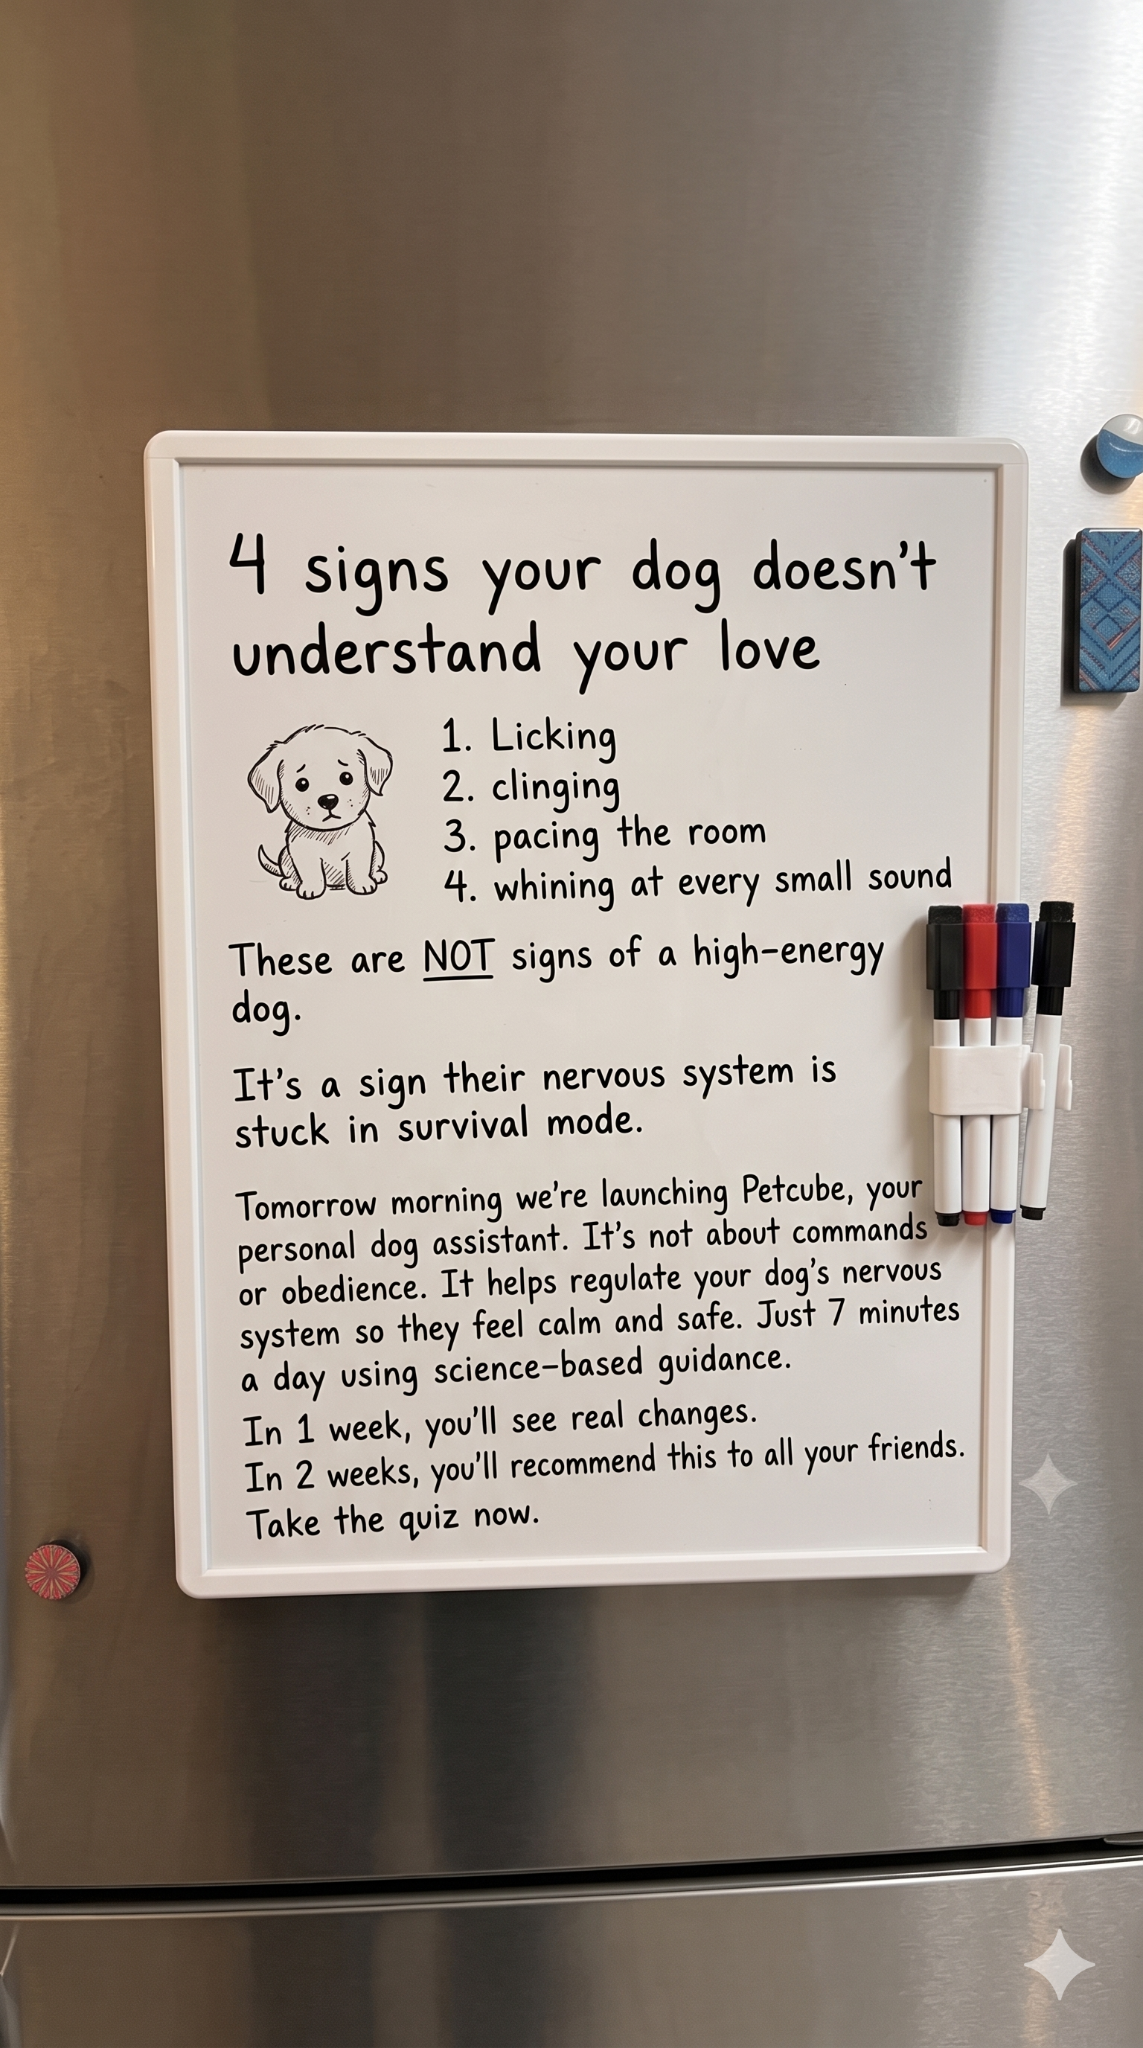 4 signs your dog doesn't
understand your love
1. Licking
2. clinging
3. pacing the room
4. whining at every small sound
These are NOT signs of a high-energy
dog.
It's a sign their nervous system is
stuck in survival mode.
Tomorrow morning we're launching Petcube, your
personal dog assistant. It's not about commands
or obedience. It helps regulate your dog's nervous
system so they feel calm and safe. Just 7 minutes
a day using science-based guidance.
In 1 week, you'll see real changes.
In 2 weeks, you'll recommend this to all your friends.
Take the quiz now.